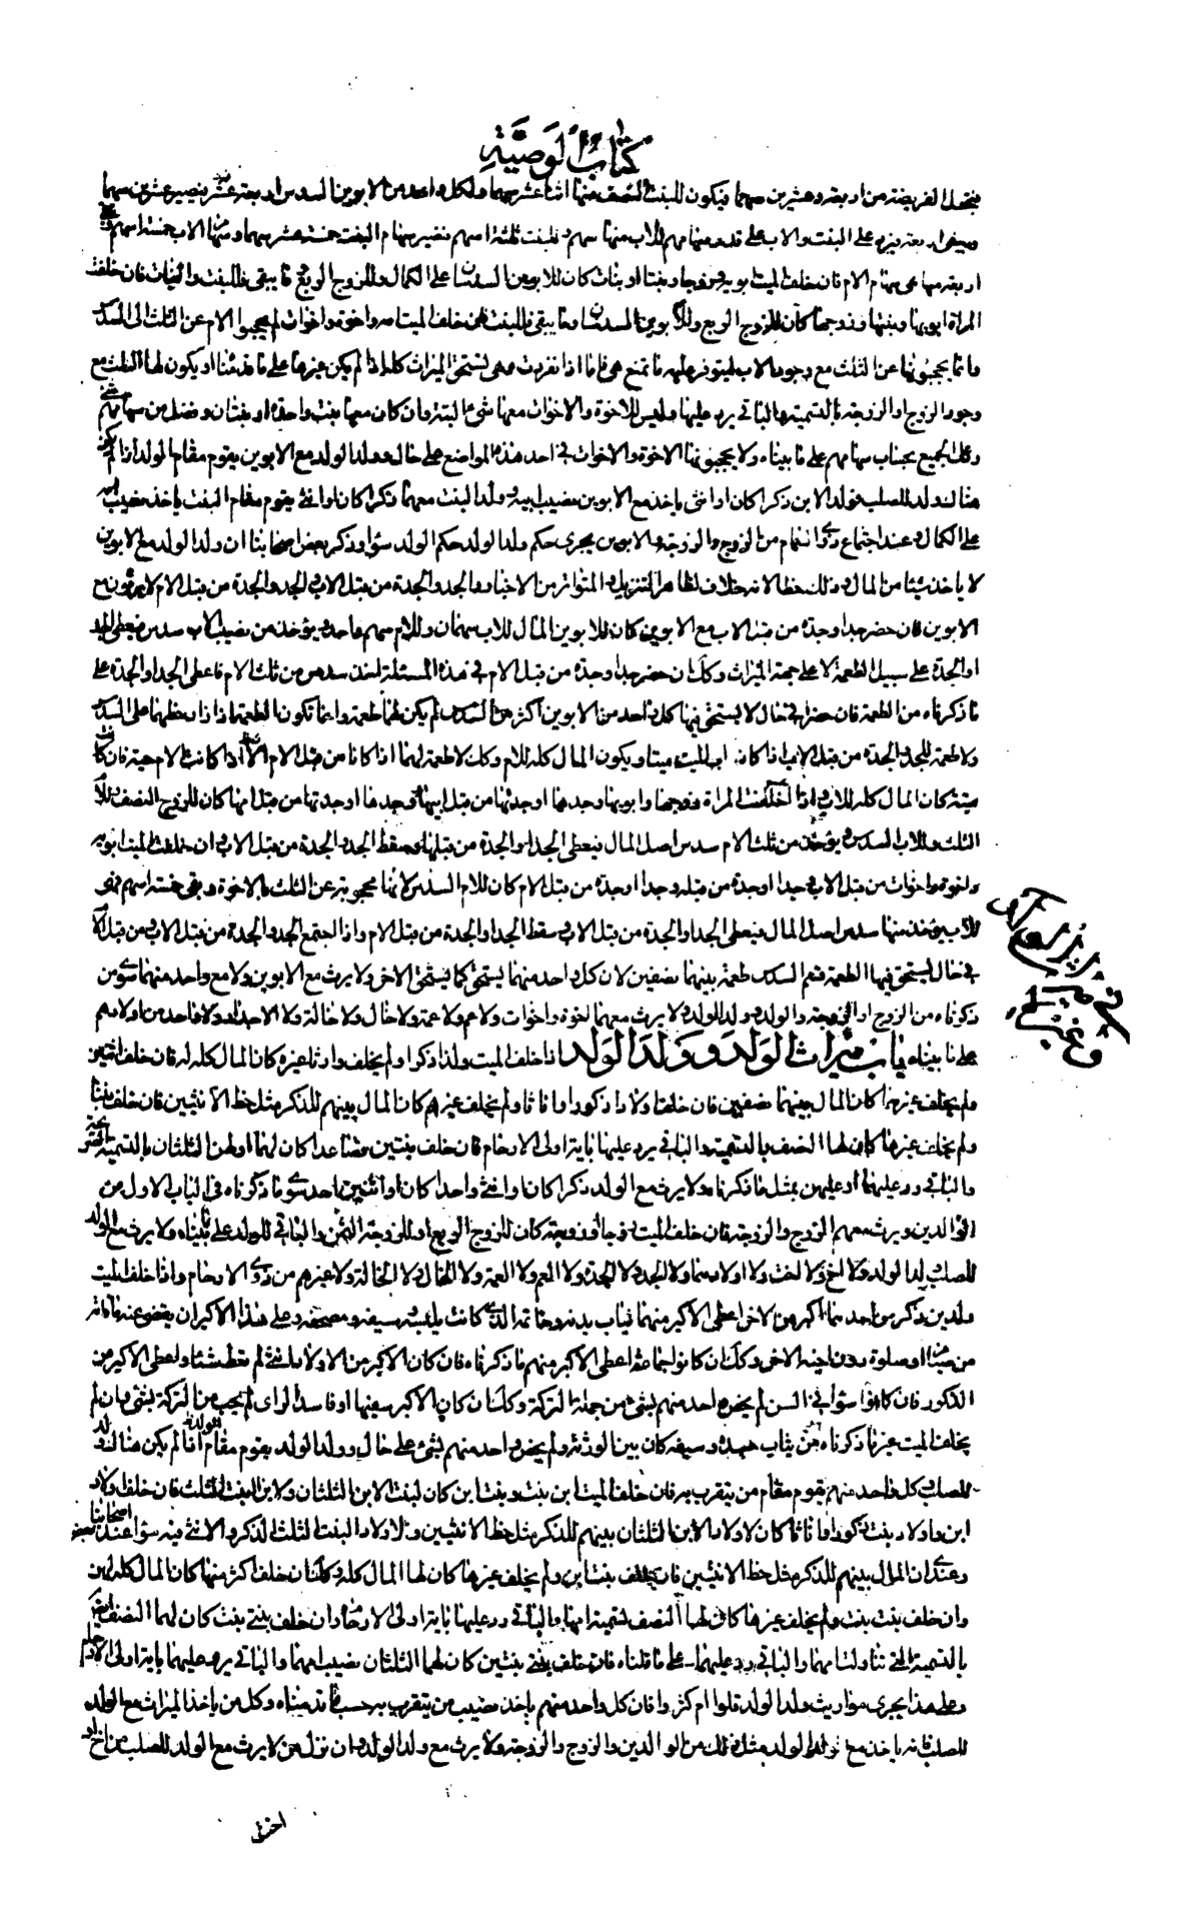 كتاب الوصية
فتجعل الفريضة من اربعة وعشرين سهما فيكون للبنت النصف منها اثنا عشر سهما ولكل واحد من الابوين السدس اربعة عشر فيصير عشرين سهما
ويبقى اربعة يرد على البنت والاب على قدر سهامهم للاب منها سهم وللبنت ثلثة اسهم فيصير سهام البنت خمسة عشر سهما وسهام الاب خمسة اسهم
اربعة منها هي سهام الام فان خلف الميت ابويه وزوجا وبنتا او بنات كان للابوين السدسان على الكمال وللزوج الربع ما يبقى فللبنت والبنات فان خلفت
المراة ابويها وبنتها وزوجها كان للزوج الربع وللابوين السدسان وما يبقى فللبنت فان خلف الميت امه واخوة واخوات لم يحجبوا الام عن الثلث الى السدس
وانما يحجبونها عن الثلث مع وجود الاب ليتوفر عليه ما تمنع هي فاما اذا انفردت فهي تستحق الميراث كله اذا لم يكن غيرها على ما قدمنا او يكون لها الثلث مع
وجود الزوج او الزوجة بالتسمية والباقي يرد عليها وليس للاخوة والاخوات معها شيء البتة وان كان معها بنت واحدة او بنتان وفضل من سهامهم شيء
وكان الجميع بحساب سهامهم على ما بيناه ولا يحجبونها الاخوة والاخوات في احد هذه المواضع على حال وولد الولد مع الابوين يقوم مقام الولد اذا لم يكن
هناك ولد للصلب فولد الابن ذكرا كان او انثى ياخذ مع الابوين نصيب ابيه وولد البنت معهما ذكرا كان او انثى يقوم مقام البنت ياخذ نصيب امه
على الكمال وعند اجتماع ذوي السهام من الزوج والزوجة والابوين يجري حكم ولد الولد حكم الولد سواء وذكر بعض اصحابنا ان ولد الولد مع الابوين
لا ياخذ شيئا من المال وذلك خطا لانه خلاف لظاهر التنزيل والمتواتر من الاخبار والجد والجدة من قبل الاب والجد والجدة من قبل الام لا يرثون مع
الابوين فان حضر جد او جدة من قبل الاب مع الابوين كان للابوين المال للاب سهمان وللام سهم واحد ويؤخذ من نصيب الاب سدس فيعطى الجد
او الجدة على سبيل الطعمة لا على جهة الميراث وكذلك ان حضر جد او جدة من قبل الام في هذه المسئلة اخذ سدس من ثلث الام فاعطى الجد او الجدة على
ما ذكرناه من الطعمة فان حضرا في حال لا يستحق فيها كل واحد من الابوين اكثر من السدس لم يكن لهما طعمة وانما تكون الطعمة اذا زاد حظهما على السدس
ولا طعمة للجد والجدة من قبل الاب اذا كان اب الميت ميتا ويكون المال كله للام وكذلك لا طعمة لهما اذا كانا من قبل الام الا اذا كانت الام حية فان كانت
ميتة كان المال كله للاب واذا خلفت المراة زوجها وابويها وجدها او جدتها من قبل ابيها وجدها او جدتها من قبل امها كان للزوج النصف وللام
الثلث وللاب السدس ويؤخذ من ثلث الام سدس اصل المال فيعطى الجد او الجدة من قبلها وسقط الجد والجدة من قبل الاب وان خلف الميت ابويه
واخوة واخوات من قبل الاب وجدا او جدة من قبله وجدا او جدة من قبل الام كان للام السدس لانها محجوبة عن الثلث بالاخوة وبقي خمسة اسهم فهو
للاب يؤخذ منها سدس اصل المال فيعطى الجد او الجدة من قبل الاب وسقط الجد او الجدة من قبل الام واذا اجتمع الجد والجدة من قبل الاب ومن قبل الام
في حال يستحق فيها الطعمة قسم السدس طعمة بينهما نصفين لان كل واحد منهما يستحق كما يستحق الاخر ولا يرث مع الابوين ولا مع واحد منهما سوى من
ذكرناه من الزوج او الزوجة والولد وولد الولد ولا يرث معهما اخوة واخوات ولا عم ولا عمة ولا خال ولا خالة ولا الاجداد ولا واحد من اولادهم
على ما بيناه باب ميراث الولد وولد الولد اذا خلف الميت ولدا ذكرا ولم يخلف وارثا غيره كان المال كله له فان خلف اثنين
ولم يخلف غيرهما كان المال بينهما نصفين فان خلف اولادا ذكورا واناثا ولم يخلف غيرهم كان المال بينهم للذكر مثل حظ الانثيين فان خلف بنتا
ولم يخلف غيرها كان لها النصف بالتسمية والباقي يرد عليها باية اولى الارحام فان خلف بنتين فصاعدا كان لهما او لهن الثلثان بالتسمية
والباقي رد عليهما او عليهن بمثل ما ذكرناه ولا يرث مع الولد ذكرا كان او انثى واحدا كان او اثنين احد سوى ما ذكرناه في الباب الاول من
الوالدين ويرث معهم الزوج والزوجة فان خلف الميت زوجا او زوجة كان للزوج الربع او للزوجة الثمن والباقي للولد على ما بيناه ولا يرث مع الولد
للصلب ولد الولد ولا اخ ولا اخت ولا اولادهما ولا الجد ولا الجدة ولا العم ولا العمة ولا الخال ولا الخالة ولا غيرهم من ذوي الارحام واذا خلف الميت
ولدين ذكرين احدهما اكبر من الاخر اعطى الاكبر منهما ثياب بدنه وخاتمه الذي كانت يلبسه سيفه ومصحفه وعلى هذا الاكبر ان يقضي عنه ما فاته
من صيام او صلوة دون اخيه الاخر وكذلك ان كانوا جماعة اعطى الاكبر منهم ما ذكرناه فان كان الاكبر من الاولاد انثى لم تعط شيئا واعطى الاكبر من
الذكور فان كانوا سواء في السن لم يخص احد منهم بشيء من جملة التركة وكذلك ان كان الاكبر سفيها او فاسد الراي لم يحب من التركة بشيء وان لم
يخلف الميت غير ما ذكرناه من ثياب جسده وسيفه كان بين الورثة ولم يخص واحد منهم بشيء على حال وولد الولد يقوم مقام الولد اذا لم يكن هناك ولد
للصلب وكل واحد منهم يقوم مقام من يتقرب به فان خلف الميت ابن بنت وبنت ابن كان لبنت الابن الثلثان ولابن البنت الثلث فان خلف اولاد
ابن واولاد بنت ذكورا واناثا كان لاولاد الابن الثلثان بينهم للذكر مثل حظ الانثيين ولاولاد البنت الثلث الذكر والانثى فيه سواء عند بعض اصحابنا
وعندي ان المال بينهم للذكر مثل حظ الانثيين فان خلف بنت ابن ولم يخلف غيرها كان لها المال كله وكذلك ان خلف اكثر منها كان المال كله لهن
وان خلف بنت بنت ولم يخلف غيرها كان لها النصف تسمية امها والباقي رد عليها باية اولى الارحام وان خلف بنتي بنت كان لهما النصف ايضا
بالتسمية التي تناولتها امهما والباقي رد عليهما على ما قلناه فان خلف بنتي بنتين كان لهما الثلثان نصيب امهما والباقي يرد عليهما باية اولى الارحام
وعلى هذا يجري مواريث ولد الولد قلوا ام كثروا فان كل واحد منهم ياخذ نصيب من يتقرب به حسب ما قدمناه وكل من ياخذ الميراث مع الولد
للصلب فانه ياخذ مع ولد الولد مثل ذلك من الوالدين والزوج والزوجة ولا يرث مع ولد الولد وان نزل من لا يرث مع الولد للصلب من اخ او